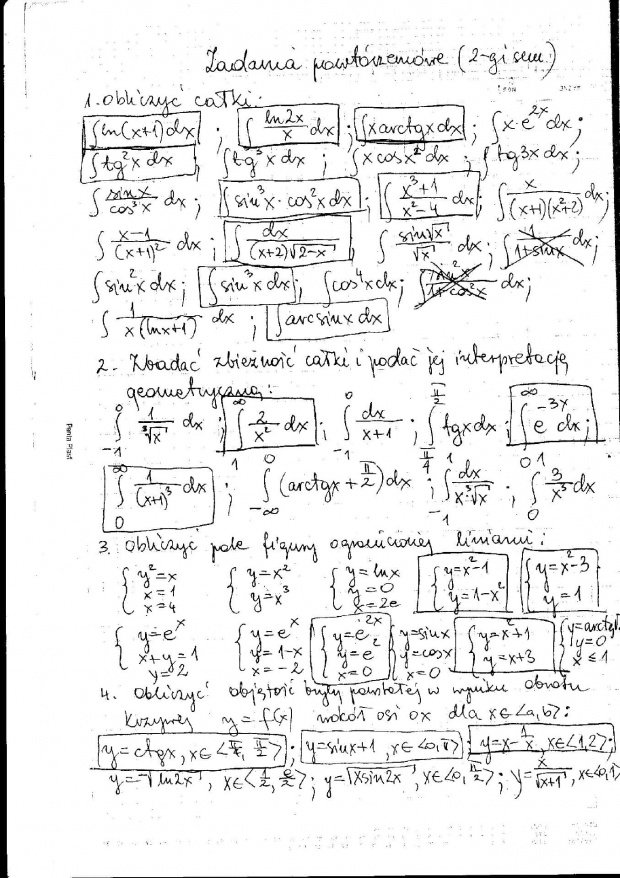 Zadania powtórzeniowe (2-gi sem.)
1. obliczyć całki:
∫ln(x+1)dx ; ∫ln2x/x dx ; ∫x arctgx dx ; ∫x·e^{2x}dx ;
∫tg²x dx ; ∫tg³x dx ; ∫x cosx² dx ; ∫tg3x dx ;
∫sinx/cos³x dx ; ∫sin³x·cos²x dx ; ∫(x³+1)/(x²-4) dx ; ∫x/((x+1)(x²+2)) dx ;
∫(x-1)/(x+1)² dx ; ∫dx/((x+2)√(2-x)) ; ∫sin√x/√x dx ; ∫1/(1+sinx) dx ;
∫sin²x dx ; ∫sin³x dx , ∫cos⁴x dx ; ∫sin²x/(1+cos²x) dx ;
∫1/(x(lnx+1)) dx ; ∫arcsinx dx
2. Zbadać zbieżność całki i podać jej interpretację
geometryczną :
∫_{-1}^{0} 1/∛x dx ; ∫_{1}^{∞} 2/x² dx ; ∫_{-1}^{0} dx/(x+1) ; ∫_{π/4}^{π/2} tgx dx ; ∫_{0}^{∞} e^{-3x} dx ;
∫_{0}^{∞} 1/(x+1)³ dx ; ∫_{-∞}^{0} (arctgx + π/2)dx ; ∫_{-1}^{1} dx/(x·∛x) ; ∫_{0}^{1} 3/x³ dx
3. obliczyć pole figury ograniczonej liniami :
{y²=x x=1 x=4 {y=x² y=x³ {y=lnx y=0 x=2e {y=x²-1 y=1-x² {y=x²-3 y=1
{y=e^x x+y=1 y=2 {y=e^x y=1-x x=-2 {y=e^{2x} y=e² x=0 {y=sinx y=cosx x=0 {y=x²+1 y=x+3 {y=arctgx y=0 x≤1
4. obliczyć objętość bryły powstałej w wyniku obrotu
krzywej y=f(x) wokół osi ox dla x∈<a,b>:
y=ctgx, x∈<π/4, π/2> ; y=sinx+1, x∈<0,π> ; y=x-1/x, x∈<1,2> ;
y=√ln2x, x∈<1/2, e/2> ; y=√xsin2x, x∈<0, π/2> ; y=x/√(x+1), x∈<0,1>